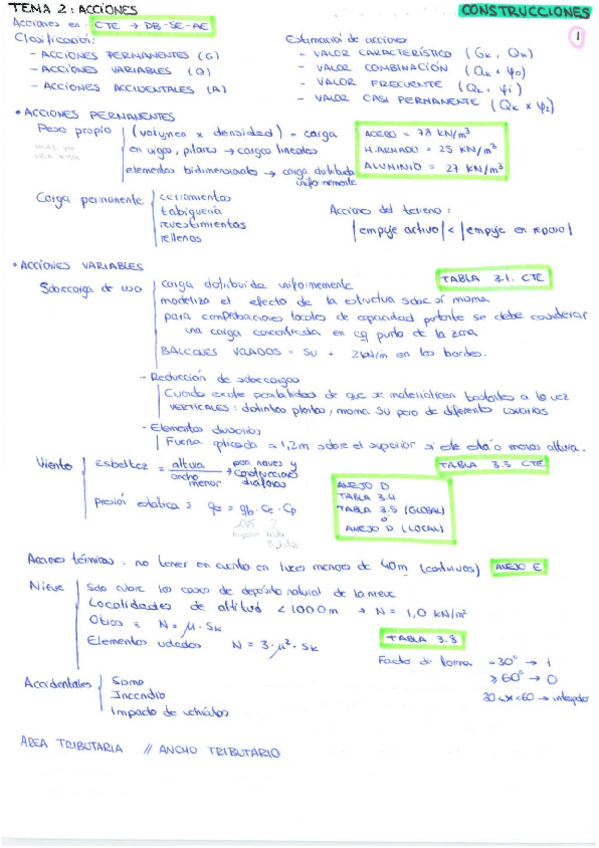 TEMA 2: ACCIONES
CONSTRUCCIONES
1
Acciones en: CTE → DB-SE-AE
Clasificación:
- ACCIONES PERMANENTES (G)
- ACCIONES VARIABLES (Q)
- ACCIONES ACCIDENTALES (A)
Estimación de acciones
- VALOR CARACTERÍSTICO (Gk, Qk)
- VALOR COMBINACIÓN (Qk × ψ0)
- VALOR FRECUENTE (Qk · ψ1)
- VALOR CASI PERMANENTE (Qk × ψ2)
• ACCIONES PERMANENTES
Peso propio
(volumen x densidad) = carga
en vigas, pilares → cargas lineales
elementos bidimensionales → carga distribuida
uniformemente
ACERO = 78 kN/m³
H.ARMADO = 25 kN/m³
ALUMINIO = 27 kN/m³
Carga permanente
cerramientos
tabiquería
revestimientos
rellenos
Acciones del terreno:
|empuje activo| < |empuje en reposo|
• ACCIONES VARIABLES
TABLA 3.1. CTE
Sobrecarga de uso
carga distribuida uniformemente
modeliza el efecto de la estructura sobre sí misma
para comprobaciones locales de capacidad portante se debe considerar
una carga concentrada en cq punto de la zona
BALCONES VOLADOS = SU + 2kN/m en los bordes.
- Reducción de sobrecargas
Cuando existe posibilidades de que se materialicen bastantes a la vez
VERTICALES: distintas plantas, misma SU pero de diferentes usuarios
- Elementos divisorios
Fuerza aplicada a 1,2m sobre el superior si éste está a menos altura.
TABLA 3.3 CTE
Viento
Esbeltez = altura / ancho menor → para naves y
construcciones
diáfanas
presión estática: qe = qb · Ce · Cp
ANEJO D
TABLA 3.4
TABLA 3.5 (GLOBAL)
o
ANEJO D (LOCAL)
Acciones térmicas: no tener en cuenta en luces menores de 40m (continuos) ANEJO E
Nieve
Solo cubre los casos de depósito natural de la nieve
Localidades de altitud < 1000m → N = 1,0 kN/m²
Otros = N = μ · Sk
Elementos volados N = 3·μ²·Sk
TABLA 3.8
Factor de forma
<30° → 1
≥60° → 0
30<x<60 → interpolar
Accidentales
Sismo
Incendio
Impacto de vehículos
AREA TRIBUTARIA // ANCHO TRIBUTARIO